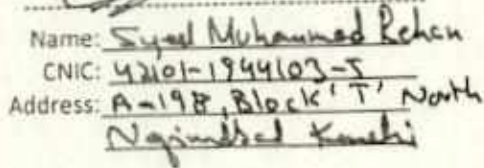 Name: Syed Muhammad Rehan
CNIC: 42101-1944103-5
Address: A-198, Block 'T' North
Nazimabad Karachi